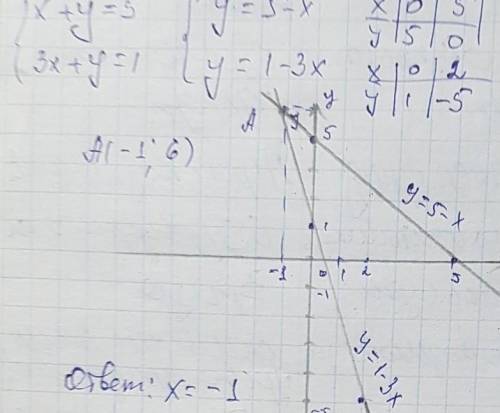 x+y=5 y=5-x x 0 5
y 5 0
3x+y=1 y=1-3x x 0 2
y 1 -5
y
A 5
A(-1; 6)
y=5-x
1
-1 0 1 2 5
-1
y=1-3x
Ответ: x=-1
-5